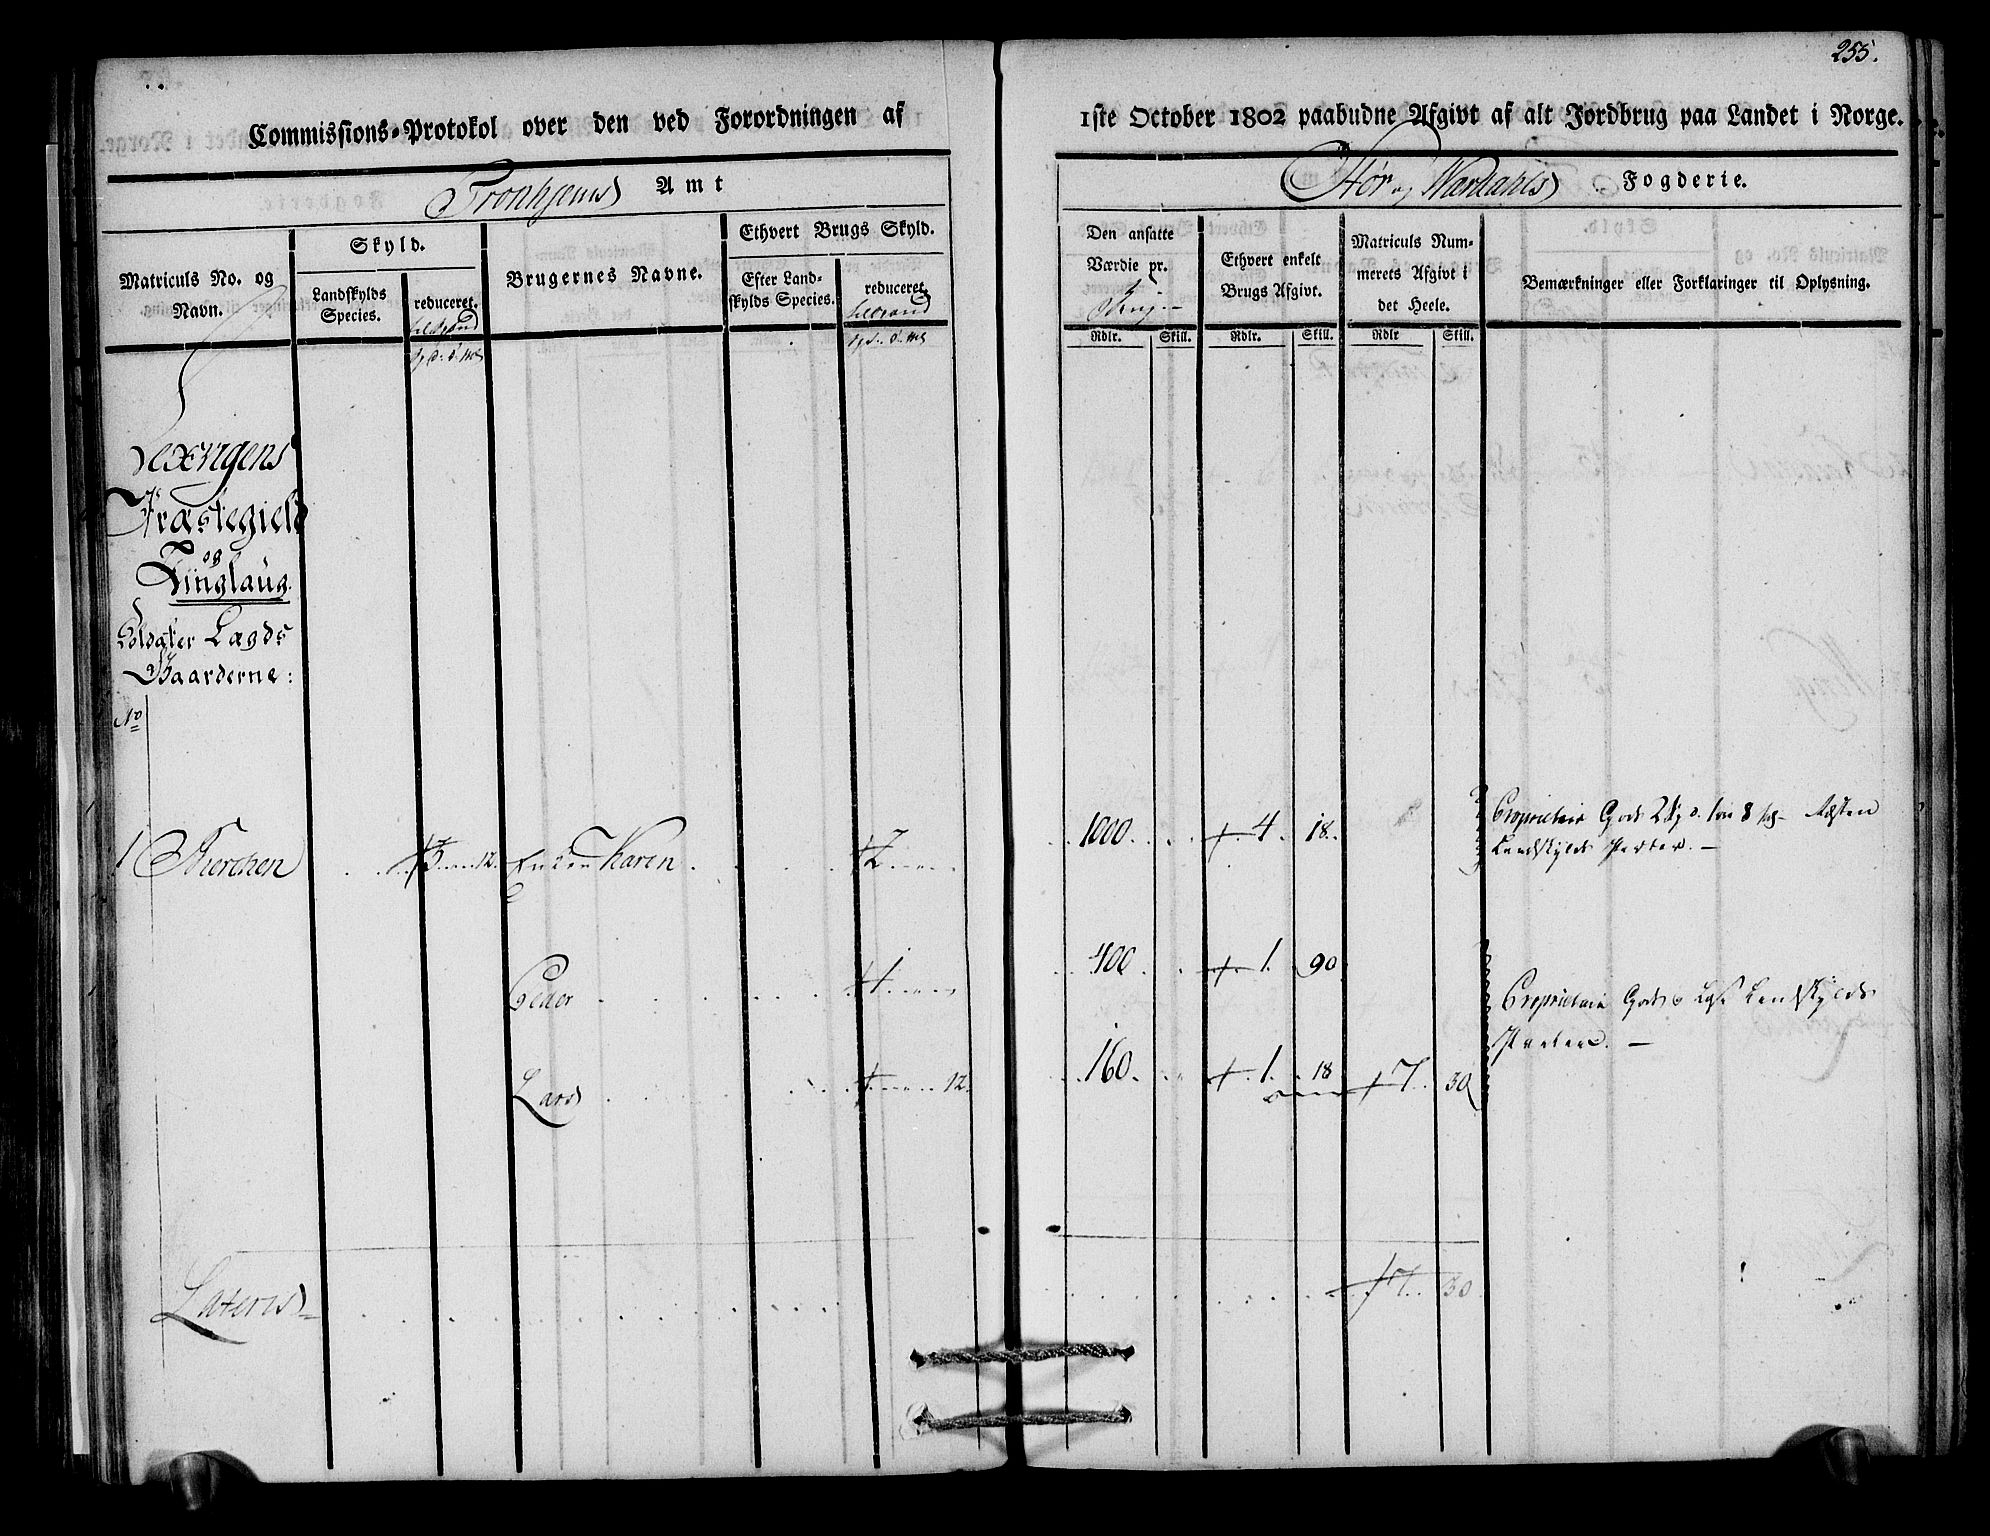 255.
Commissions-Protokol over den ved Forordningen af 1ste October 1802 paabudne Afgivt af alt Jordbrug paa Landet i Norge.
Tronhjems Amt
Stør og Værdahls Fogderie.
Matriculs No. og Navn.
Skyld.
Landskylds Species.
reduceret.
Brugernes Navne.
Ethvert Brugs Skyld.
Efter Landskylds Species.
reduceret.
Den ansatte Værdie pr.
Rdlr. Skill.
Ethvert enkelt Brugs Afgivt.
Rdlr. Skill.
Matriculs Nummerets Afgivt i det Heele.
Rdlr Skill.
Bemærkninger eller Forklaringer til Oplysning.
Lexvigens
Præstegield
og
Tinglaug.
Soldater Lægds
Gaarderne:
No
1 3 12. Enken Karen 2 1000 4 18.
Proprietair Gods
Landskylds Parter. —
Peder 1 400 1. 90
Proprietair Gods Landskylds
Parter. —
Lars 12. 160. 1. 18 7. 30
Lateris 7. 30